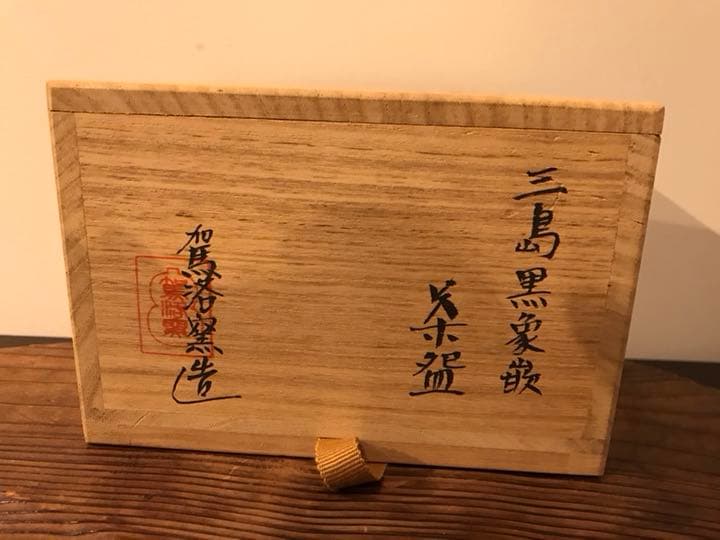 三島黒象嵌
茶盌
駕洛窯造